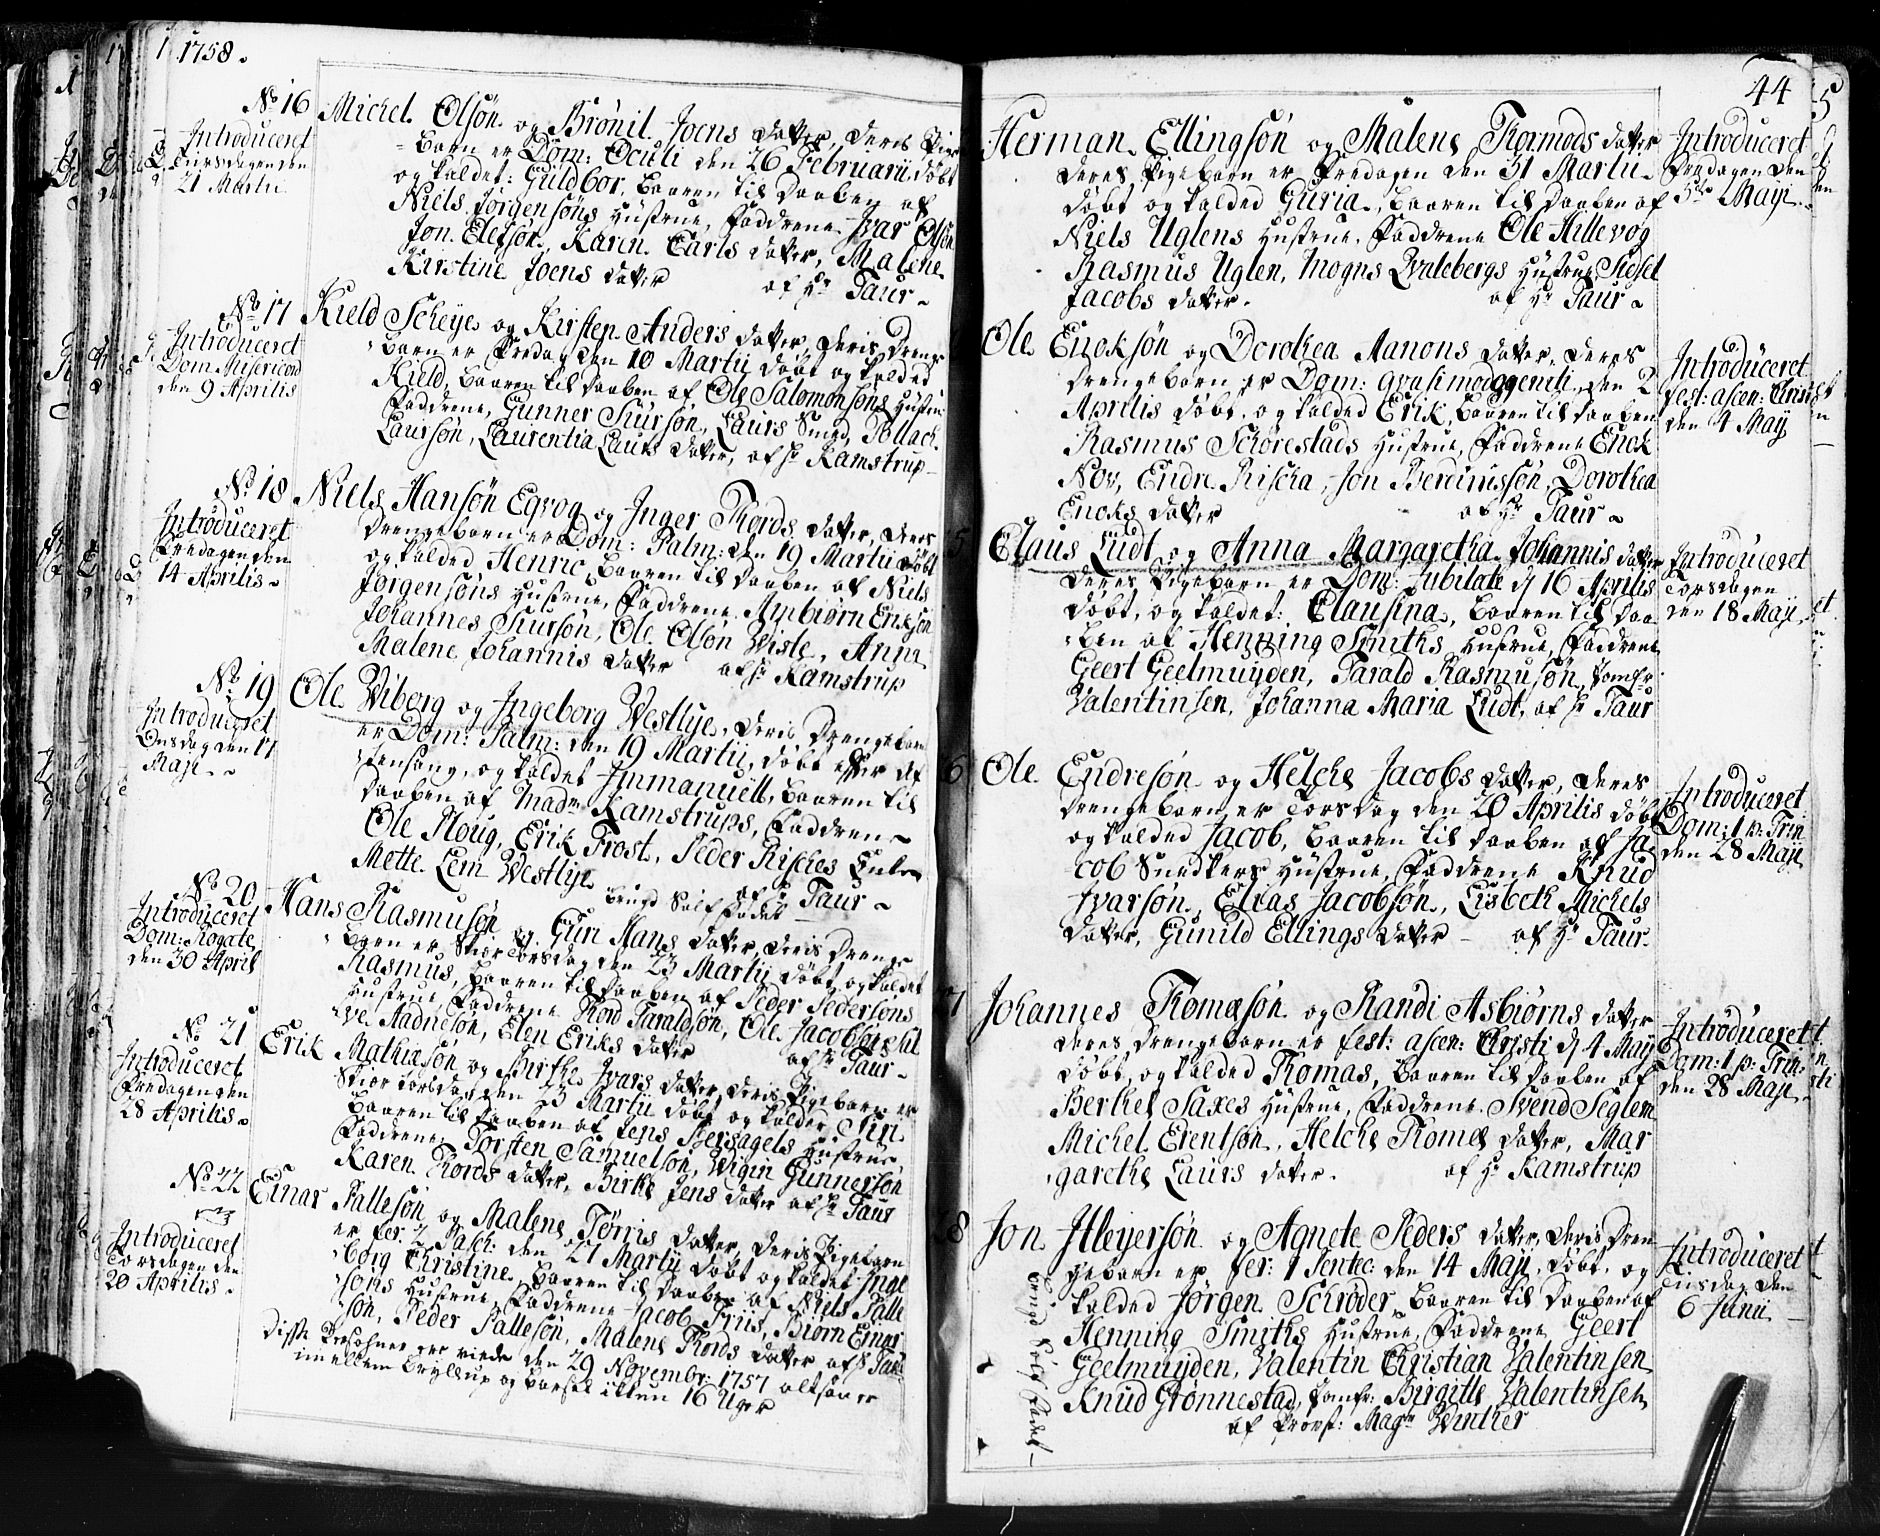 1758.
No 16
Introduceret
Tirsdagen den
21 Martii
Michel Olsøn og Brønil Joens daater, deres Pige
barn er Dom: Oculi den 26 Februarii døbt
og kaldet: Guldbor, baaren til daaben af
Niels Jørgensøns hustrue, Faddrene Ivar Olsøn
Jon Eletsøn, Karen Earls daater, Malene
Kirstine Joens daater af Hr Taur
No 17
Introduceret
Dom Misericord
den 9 Aprilis
Kield Scheye og Kirsten Anders daater, deris Drenge
barn er Fredag den 10 Martii døbt og kalded
Kield, baaren til daaben af Ole Salomonsøns hustrue
Faddrene, Gunner Siursøn, Laurs Smed, Tollach
Laursøn, Laurentia Laurs daater, af Hr Kamstrup
No 18
Introduceret
Fredagen den
14 Aprilis
Niels Hansøn Egvog og Inger Thords daater, deres
drengebarn er Dom: Palm: den 19 Martii døbt
og kaldet Henric, baaren til daaben af Niels
Jørgensøns hustrue, Faddrene Ambiørn Erichsøn
Johannes Siursøn, Ole Olsøn Wiste, Anna
Malene Johannis daater af Hr Kamstrup
No 19
Introduceret
Onsdag den 17
Maji
Ole Wiborg og Ingeborg Westlye, deris Drengebarn
er Dom: Palm: den 19 Martii, døbt efter af
tensang, og kaldet Immanuell, baaren til
daaben af Madm Kamstrups, Faddrene
Ole Ploug, Erik Frost, Peder Risches Enke
Mette Lem Westlye af Hr Taur
brugd Sølf Fadet
No 20
Introduceret
Dom: Rogate
den 30 April
Hans Rasmusøn og Guri Hans daater, deris Drenge
barn er Skiør Torsdag den 23 Martii døbt og kaldet
Rasmus, baaren til daaben af Peder Pedersøns
hustrue, Faddrene Thord Taraldsøn, Ole Jacobsøn
Aadnesøn, Elen Eriks daater af Hr Taur
No 21
Introduceret
Fredagen den
28 Aprilis
Erik Mathiasøn og Birthe Ivars daater, deris Pigebarn er
Skior Torsdag den 23 Martii døbt og kaldet Siri
baaren til daaben af Jens Bersagels hustrue,
Faddrene Torsten Samuelsøn, Wigin Gunnersøn
Karen Thords daater, Birthe Jens daater af Hr Taur
No 22
Introduceret
Torsdagen den
20 Aprilis
Einar Pallesøn og Malene Tørris daater, deris Pigebarn
er Fer: 2 Pasch: den 27 Martii døbt og kaldet Inge
borg Christine, baaren til daaben af Niels Palle
søns hustrue, Faddrene Jacob Friis, Biørn Einar
søn, Peder Pallesøn, Malene Thords daater af Hr Taur
Disse Persohner ere viede den 29 Novembr: 1757 altsaa er
imellem bryllup og barsel ikkun 16 Uger
44
Herman Ellingsøn og Malene Thormods daater
deres Pigebarn er Fredagen den 31 Martii
døbt og kalded Guria, baaren til daaben af
Niels Uglens hustrue, Faddrene Ole Hillevog
Rasmus Uglen, Mogns Qvalebergs hustrue, Sidsel
Jacobs daater. af Hr Taur
Introduceret
Fredagen den
5te Maji
Ole Enoksøn og Dorothea Aanons daater, deres
drengebarn er Dom: Qvasimodogeniti, den 2
Aprilis døbt, og kalded Erik, baaren til daaben
Rasmus Schorestads hustrue, Faddrene Enok
Nov, Endre Rischa, Jon Berdinissøn, Dorothea
Enoks daater af Hr Taur
Introduceret
fest: ascen: Christi
den 4 Maij
5
Claus Ludt og Anna Margaretha Johannis daater
deres Pigebarn er Dom: Jubilate d 16 Aprilis
døbt, og kaldet: Clausina, baaren til daa
ben af Henning Smiths hustrue, Faddrene
Geert Geelmuyden, Tarald Rasmusøn, Jomfr
Valentinsen, Johanna Maria Ludt, af Hr Taur
Introduceret
Torsdagen
den 18 Maji
6
Ole Endresøn og Helche Jacobs daater, deres
drengebarn er Torsdag den 20 Aprilis døbt
og kalded Jacob, baaren til daaben af Ja
cob Snedkers hustrue, Faddrene Knud
Ivarsøn, Elias Jacobsøn, Lisbeth Michels
daater, Gunild Ellings daater af Hr Taur
Introduceret
Dom: 1 p: Trin
den 28 Maji
7
Johannes Thomæsøn og Randi Asbiørns daater
deres drengebarn er fest: ascen: Christi d 4 Maij
døbt, og kalded Thomas, baaren til daaben af
Berthel Saxes hustrue, Faddrene Svend Seglem
Michel Erentsøn, Helche Thomæ daater, Mar
grethe Laurs daater. af Hr Kamstrup
Introduceret
Dom: 1 p: Trin:
den 28 Maji
8
Jon Itleyersøn og Agnete Peders daater, deris Dren
gebarn er Fer: 1 Pentec: den 14 Maji, døbt, og
kalded Jørgen Schrøder, baaren til daaben af
Henning Smiths hustrue, Faddrene Geert
Geelmuyden, Valentin Christian Valentinsen
Knud Grønnestad, Jomfr: Birgitte Valentinsen
af Provst: Magr Winther
brugd Sølf Fadet
Introduceret
Tirsdag den
6 Junii